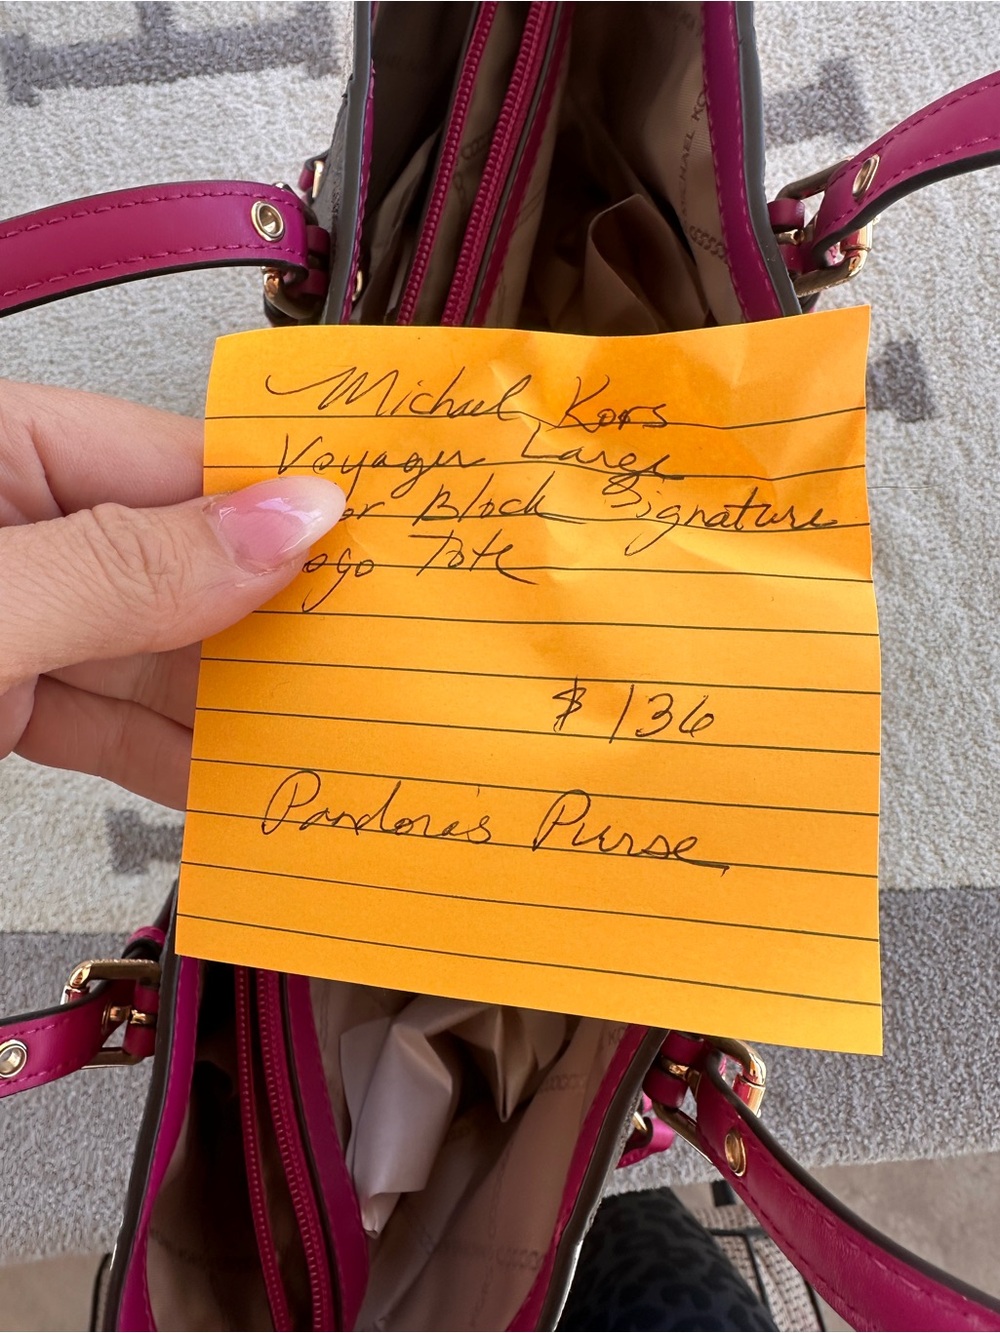 Michael Kors
Voyager Large
or Block Signature
ogo Tote
$136
Pandora's Purse
MICHAEL KO